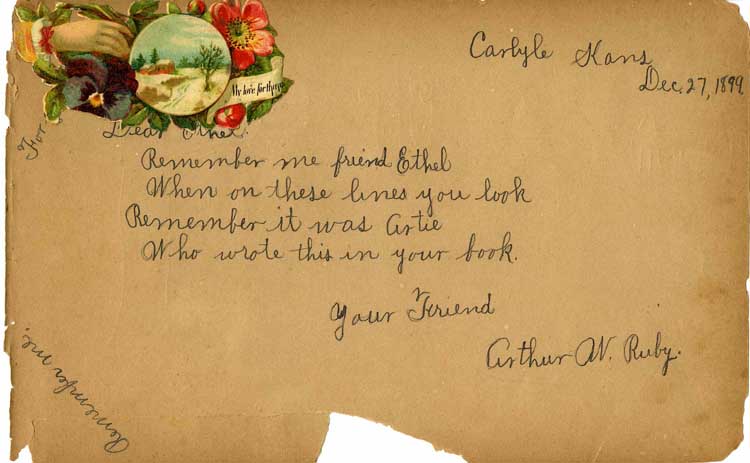 Carlyle Kans
Dec. 27, 1899
My love for thee
For
Dear Ethel.
Remember me friend Ethel
When on these lines you look
Remember it was Artie
Who wrote this in your book.
Your Friend
Arthur W. Ruby.
Remember me.